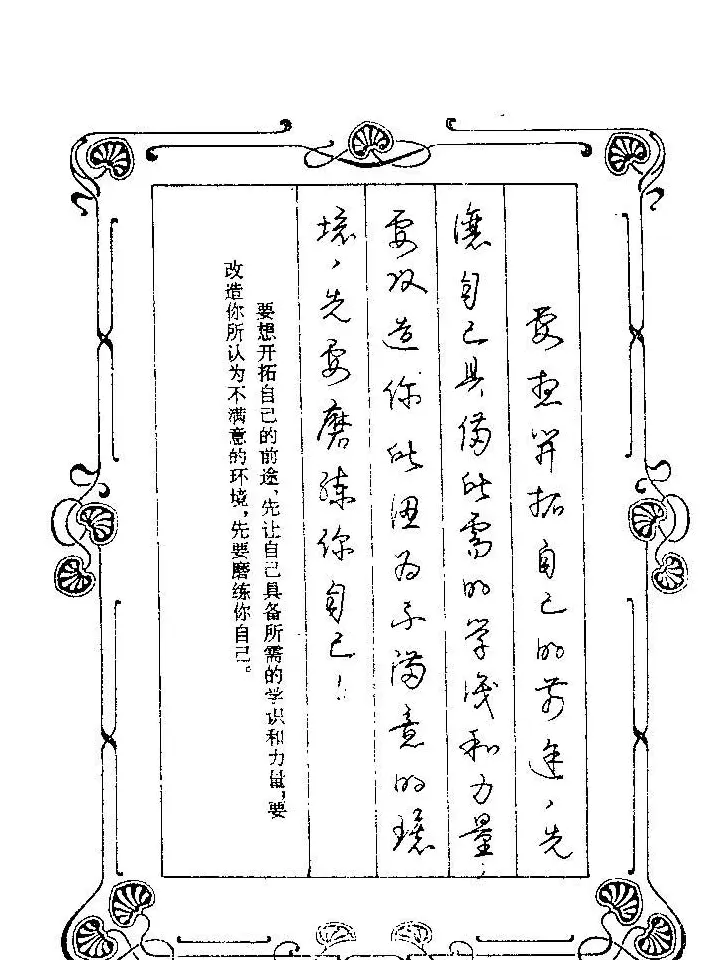 要想开拓自己的前途，先
让自己具备所需的学识和力量，
要改造你所认为不满意的环
境，先要磨练你自己！
要想开拓自己的前途、先让自己具备所需的学识和力量，要
改造你所认为不满意的环境，先要磨练你自己。